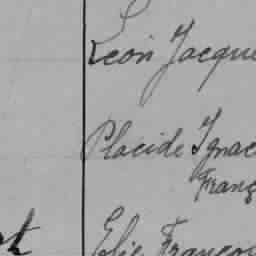 Léon Jacque
Placide Ignac
Franç
Elie Françoi